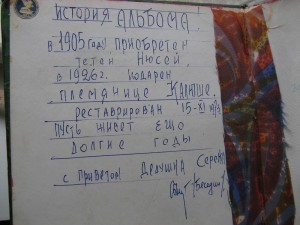 ИСТОРИЯ АЛЬБОМА!
в 1905 году приобретен
тетай Нюсей.
в 1926 г. подарен
племянице Калюше.
реставрирован 15-XI
пусть живет ещо
долгие годы
с приветом Дедушка Сережа